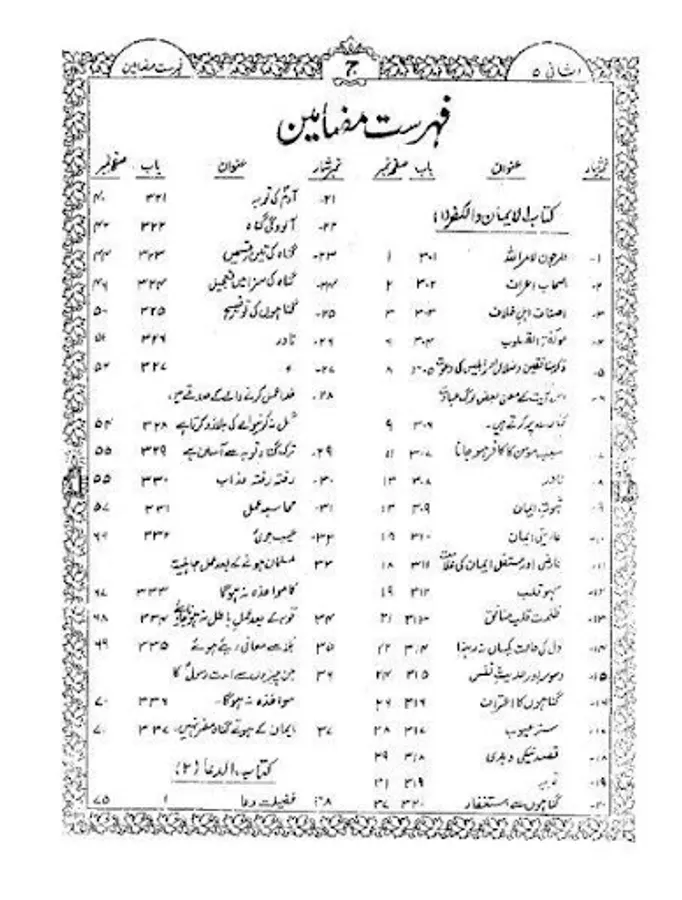 الشافی ۵
ج
فہرست مضامین
فہرست مضامین
نمبر شمار عنوان باب صفحہ نمبر
کتاب الایمان والکفر (۱)
۱- مرجون لامر اللہ ۳۰۱ ۱
۲- اصحاب اعراف ۳۰۲ ۲
۳- اصناف اہل خلاف ۳۰۳ ۳
۴- مولفۃ القلوب ۳۰۴ ۶
۵- ذکر منافقین وضلال اور ابلیس کی دعوت ۳۰۵ ۸
۶- اس آیت کے معنی بعض لوگ عبادت
کنارے پر کرتے ہیں۔ ۳۰۶ ۹
۷- سبب مومن کا کافر ہو جانا ۳۰۷ ۱۱
۸- نادر ۳۰۸ ۱۳
۹- ثبوت ایمان ۳۰۹ ۱۳
۱۰- عاریتی ایمان ۳۱۰
۱۱- عارضی اور مستقل ایمان کی علامت ۳۱۱ ۱۸
۱۲- سہو قلب ۳۱۲ ۱۹
۱۳- ظلمت قلب منافق ۳۱۳ ۲۱
۱۴- دل کی حالت یکساں نہ رہنا ۳۱۴ ۲۲
۱۵- وسوسہ اور حدیث نفس ۳۱۵ ۲۴
۱۶- گناہوں کا اعتراف ۳۱۶ ۲۶
۱۷- ستر عیوب ۳۱۷ ۲۸
۱۸- قصد نیکی و بدی ۳۱۸ ۲۹
۱۹- توبہ ۳۱۹ ۳۱
۲۰- گناہوں سے استغفار ۳۲۰ ۳۷
نمبر شمار عنوان باب صفحہ نمبر
۲۱- آدمؑ کی توبہ ۳۲۱ ۴۰
۲۲- آلودگی گناہ ۳۲۲ ۴۲
۲۳- گناہ کی تین قسمیں ۳۲۳ ۴۴
۲۴- گناہ کی سزا میں تعجیل ۳۲۴ ۴۶
۲۵- گناہوں کی توضیح ۳۲۵ ۵۰
۲۶- نادر ۳۲۶ ۵۱
۲۷- " ۳۲۷ ۵۲
۲۸- خدا عمل کرنے والے کے صدقے میں
عمل نہ کرنیوالے کی بلا رد کرتا ہے ۳۲۸ ۵۴
۲۹- ترک گناہ توبہ سے آسان ہے ۳۲۹ ۵۵
۳۰- رفتہ رفتہ عذاب ۳۳۰ ۵۵
۳۱- محاسبہ عمل ۳۳۱ ۵۷
۳۲- عیب جوئی ۳۳۲ ۶۶
۳۳ مسلمان ہونے کے بعد عمل جاہلیت
کا مواخذہ نہ ہوگا ۳۳۳ ۶۷
۳۴ توبہ کے بعد عمل باطل نہ ہو ۳۳۴ ۶۸
۳۵ بلا سے معافی دیئے ہوئے ۳۳۵ ۶۹
۳۶ جن چیزوں سے امت رسولؐ کا
مواخذہ نہ ہوگا۔ ۳۳۶ ۷۰
۳۷ ایمان کے ہوتے گناہ مضر نہیں۔ ۳۳۷ ۷۰
کتاب الدعا (۲)
۳۸ فضیلت دعا ۱ ۷۵